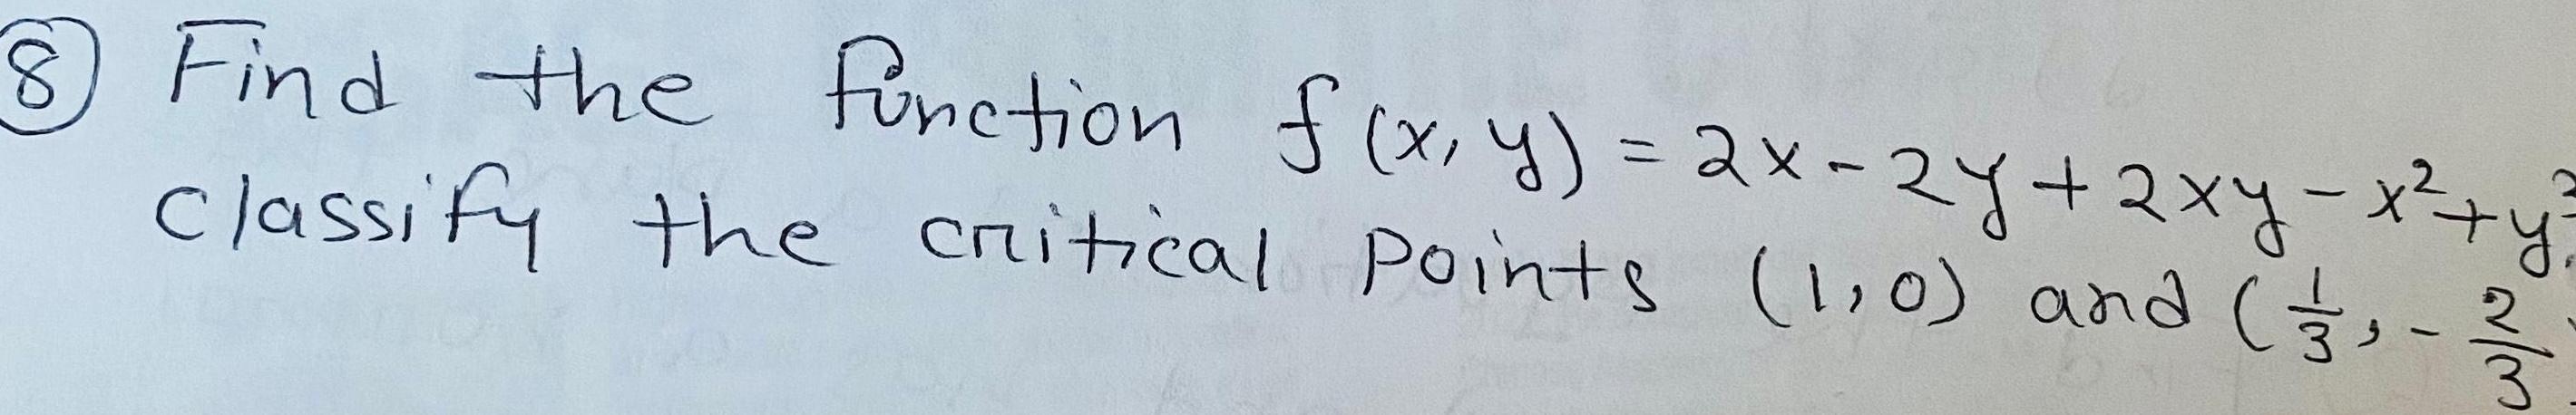 ⑧ Find the function f(x, y) = 2x - 2y + 2xy - x² + y³.
classify the critical points (1, 0) and (1/3, -2/3